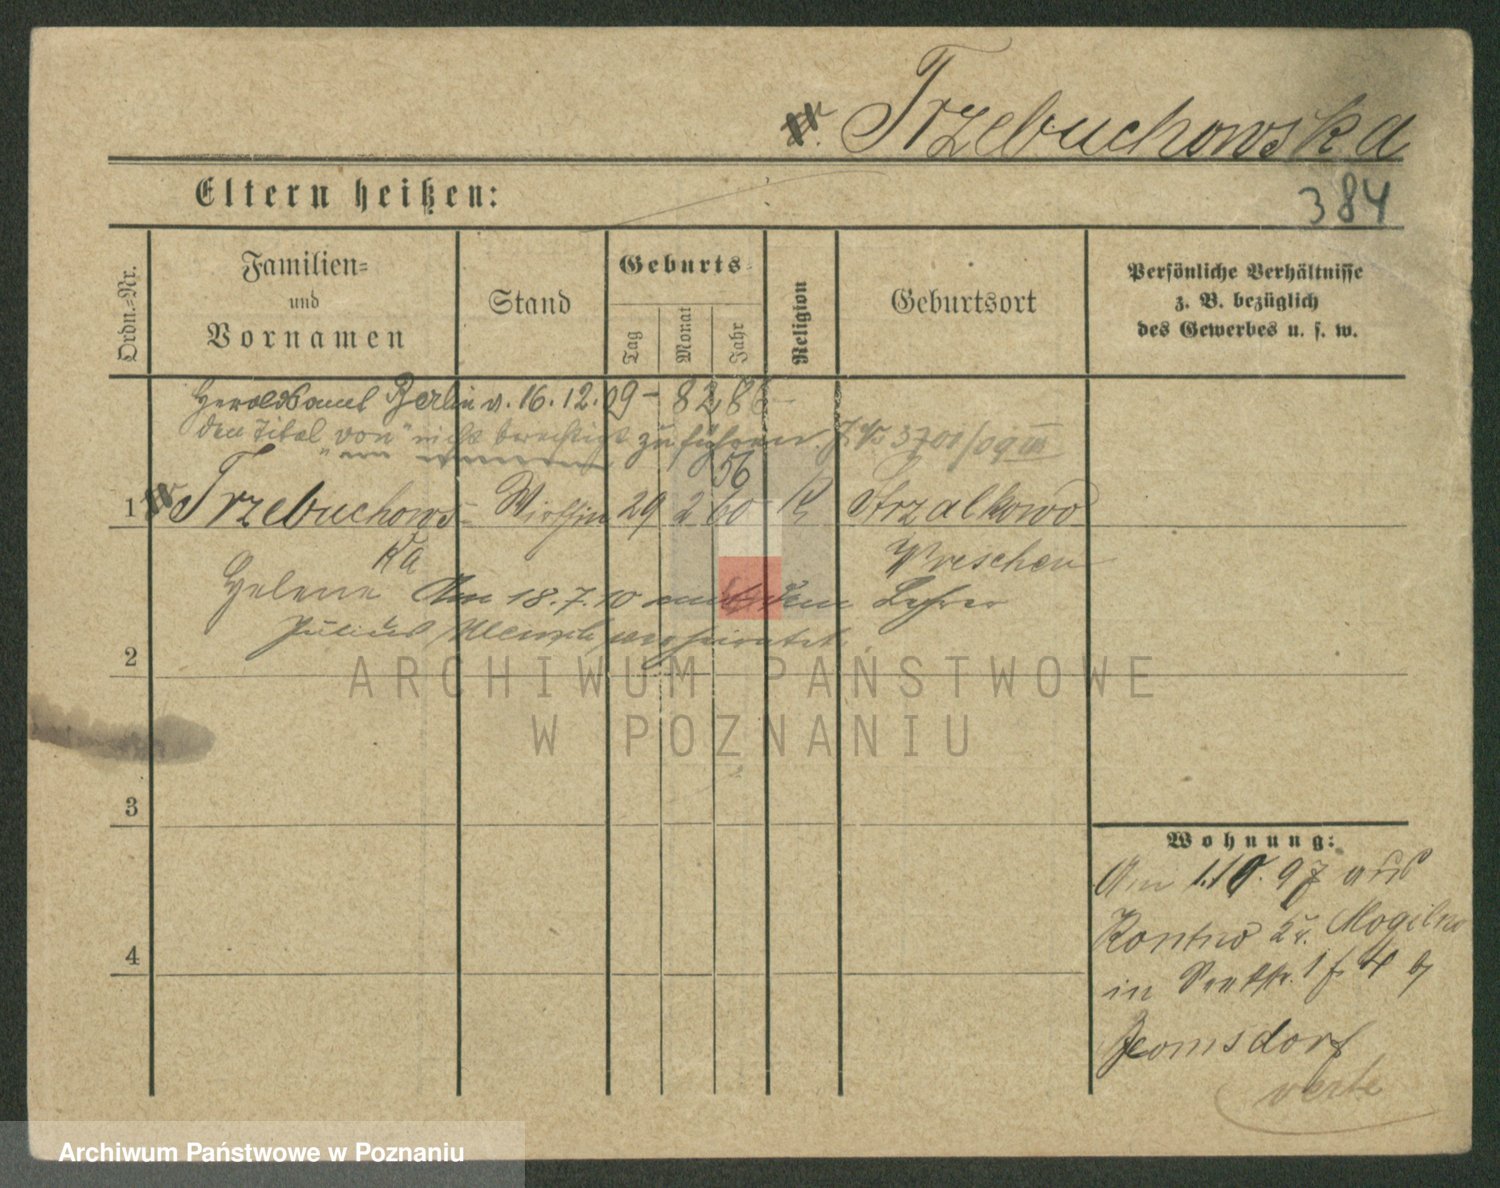 v. Trzebuchowska
384
Eltern heißen:
Ordn.-Nr.
Familien-
und
Vornamen
Stand
Geburts-
Tag
Monat
Jahr
Religion
Geburtsort
Persönliche Verhältnisse
z. B. bezüglich
des Gewerbes u. s. w.
Heroldsamt Berlin v. 16.12.09 - 8286 -
den Titel "von" nicht berechtigt zu führen. J. No 3701/09 III
56
1 v. Trzebuchows- Wirthin 29 2 60 K Strzalkowo
ka Wreschen
Helene Am 18.7.10 mit dem Lehrer
Julius verheiratet.
2
3
4
Wohnung:
Am 1.10.97 aus
Mogilno
in 1 f. 4 b
verte
ARCHIWUM PAŃSTWOWE
W POZNANIU
Archiwum Państwowe w Poznaniu